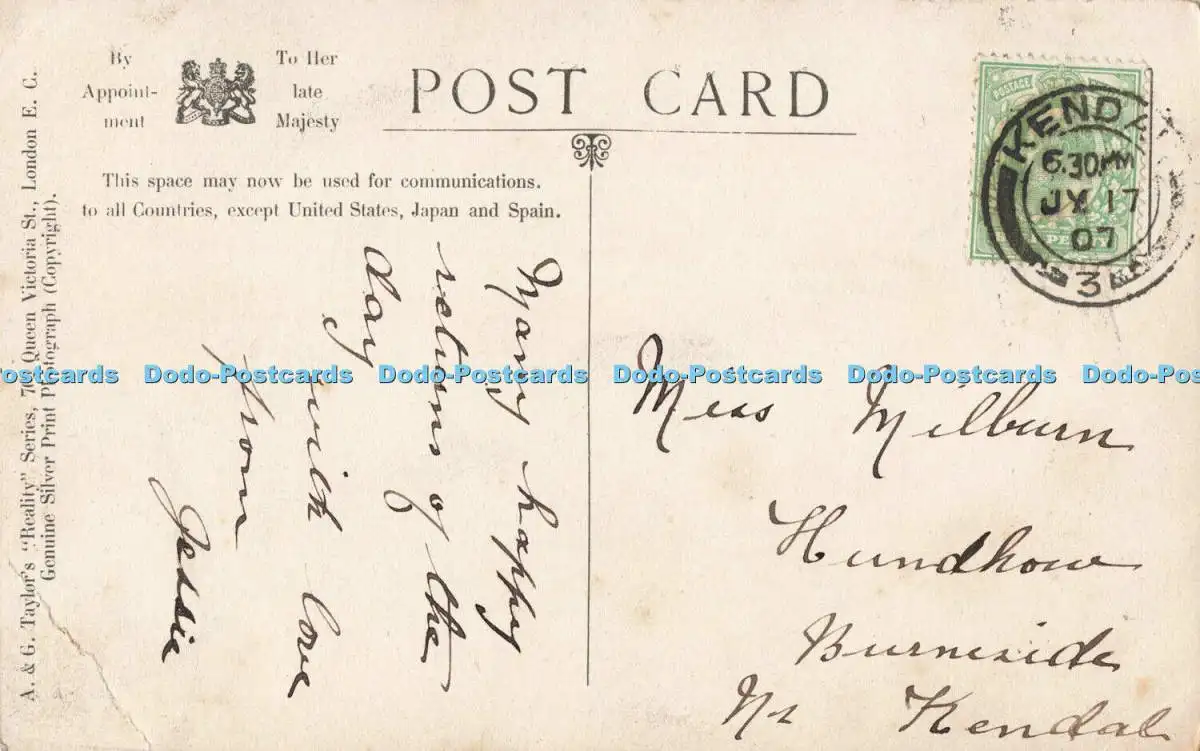 By
Appoint-
ment
To Her
late
Majesty
POST CARD
This space may now be used for communications.
to all Countries, except United States, Japan and Spain.
A. & G. Taylor's "Reality" Series, Queen Victoria St., London E. C.
Genuine Silver Print Photograph (Copyright).
Many happy
returns of the
day
with love
from
Jessie
POSTAGE
PENNY
KENDAL
6.30PM
JY 17
07
3
Miss Milburn
Hundhow
Burneside
Nr Kendal
Dodo-Postcards Dodo-Postcards Dodo-Postcards Dodo-Postcards Dodo-Postcards